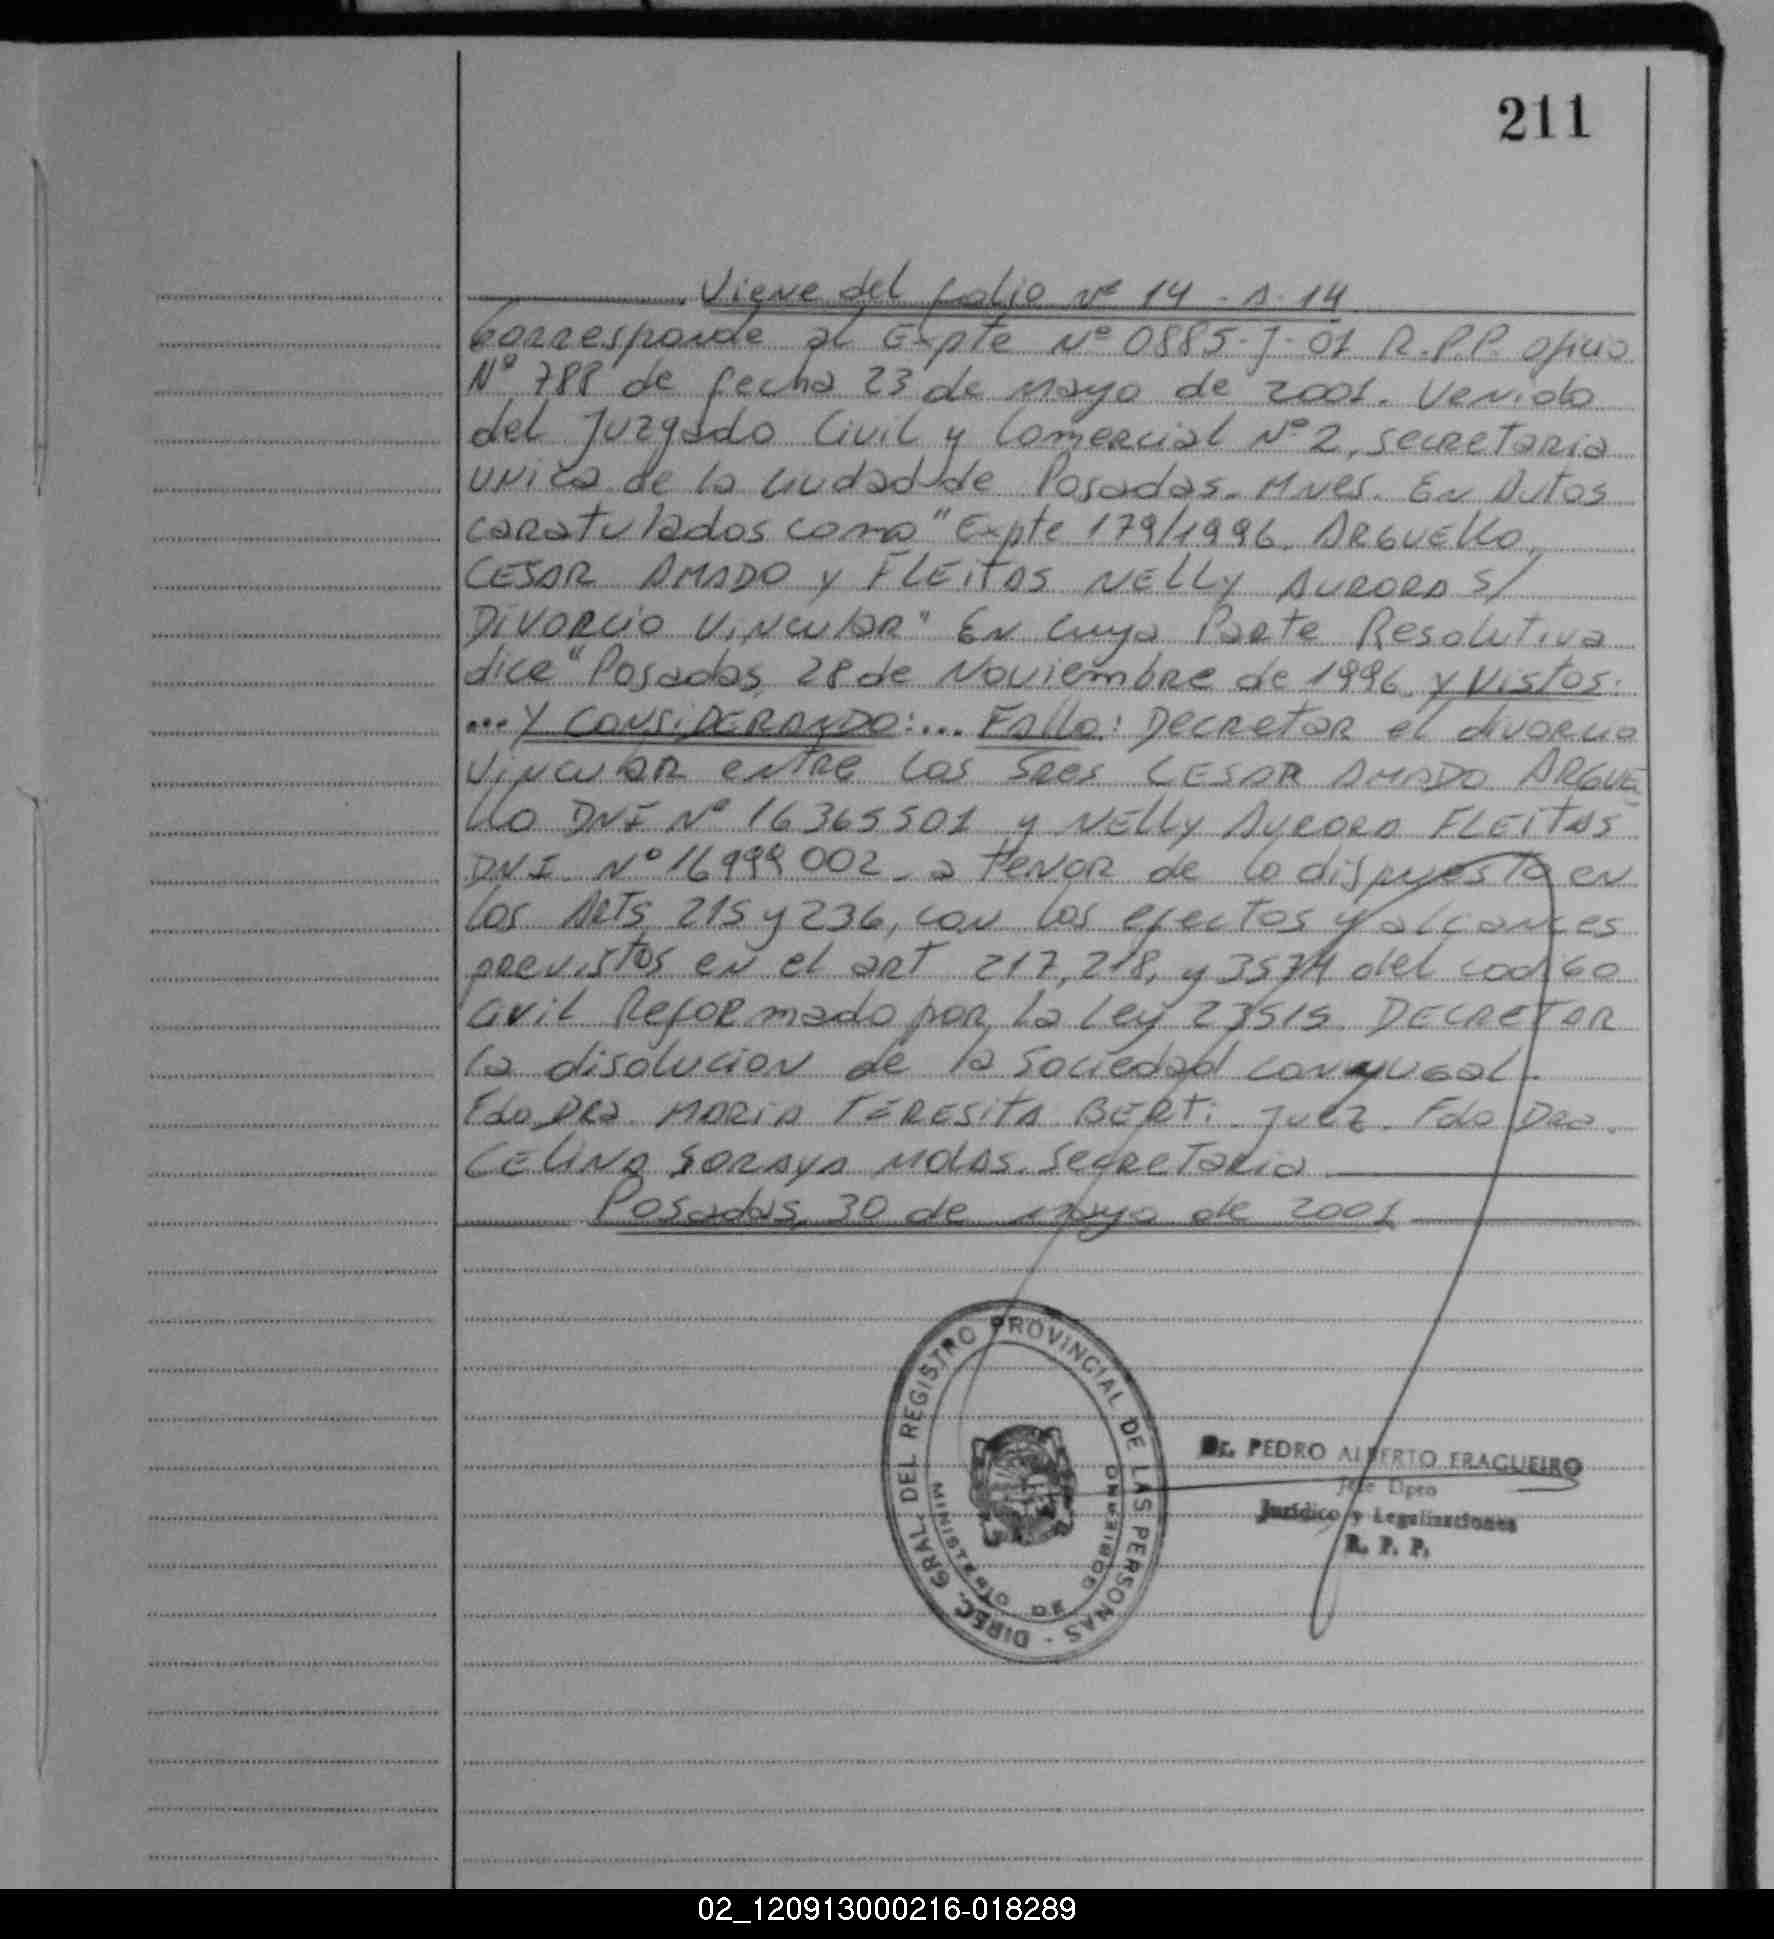 211
Viene del folio Nº 14. A. 14
Corresponde al Expte Nº 0885-J-01 R.P.P. oficio
Nº 788 de fecha 23 de Mayo de 2001. Venido
del Juzgado Civil y Comercial Nº 2, secretaria
unica de la ciudad de Posadas. Mnes. En Autos
caratulados como "Expte 179/1996. ARGUELLO,
CESAR AMADO y FLEITAS NELLY AURORA S/
DIVORCIO VINCULAR" En cuya Parte Resolutiva
dice "Posadas, 28 de Noviembre de 1996. y Vistos:
...Y CONSIDERANDO:... Fallo: Decretar el divorcio
vincular entre los Sres CESAR AMADO ARGUE
LLO DNI Nº 16365501 y NELLY AURORA FLEITAS
DNI Nº 16999002 - a tenor de lo dispuesto en
los Arts 215 y 236, con los efectos y alcances
previstos en el art 217, 218, y 3574 del codigo
civil Reformado por la Ley 23515. DECRETAR
la disolucion de la Sociedad conyugal.
Fdo Dra MARIA TERESITA BERTI. Juez. Fdo Dra.
CELINA SORAYA MOLAS. Secretaria
Posadas, 30 de mayo de 2001
DIREC. GRAL. DEL REGISTRO PROVINCIAL DE LAS PERSONAS -
MINISTERIO DE GOBIERNO
Dr. PEDRO ALBERTO FRAGUEIRO
Jefe Dpto
Jurídico y Legalizaciones
R. P. P.
02_120913000216-018289